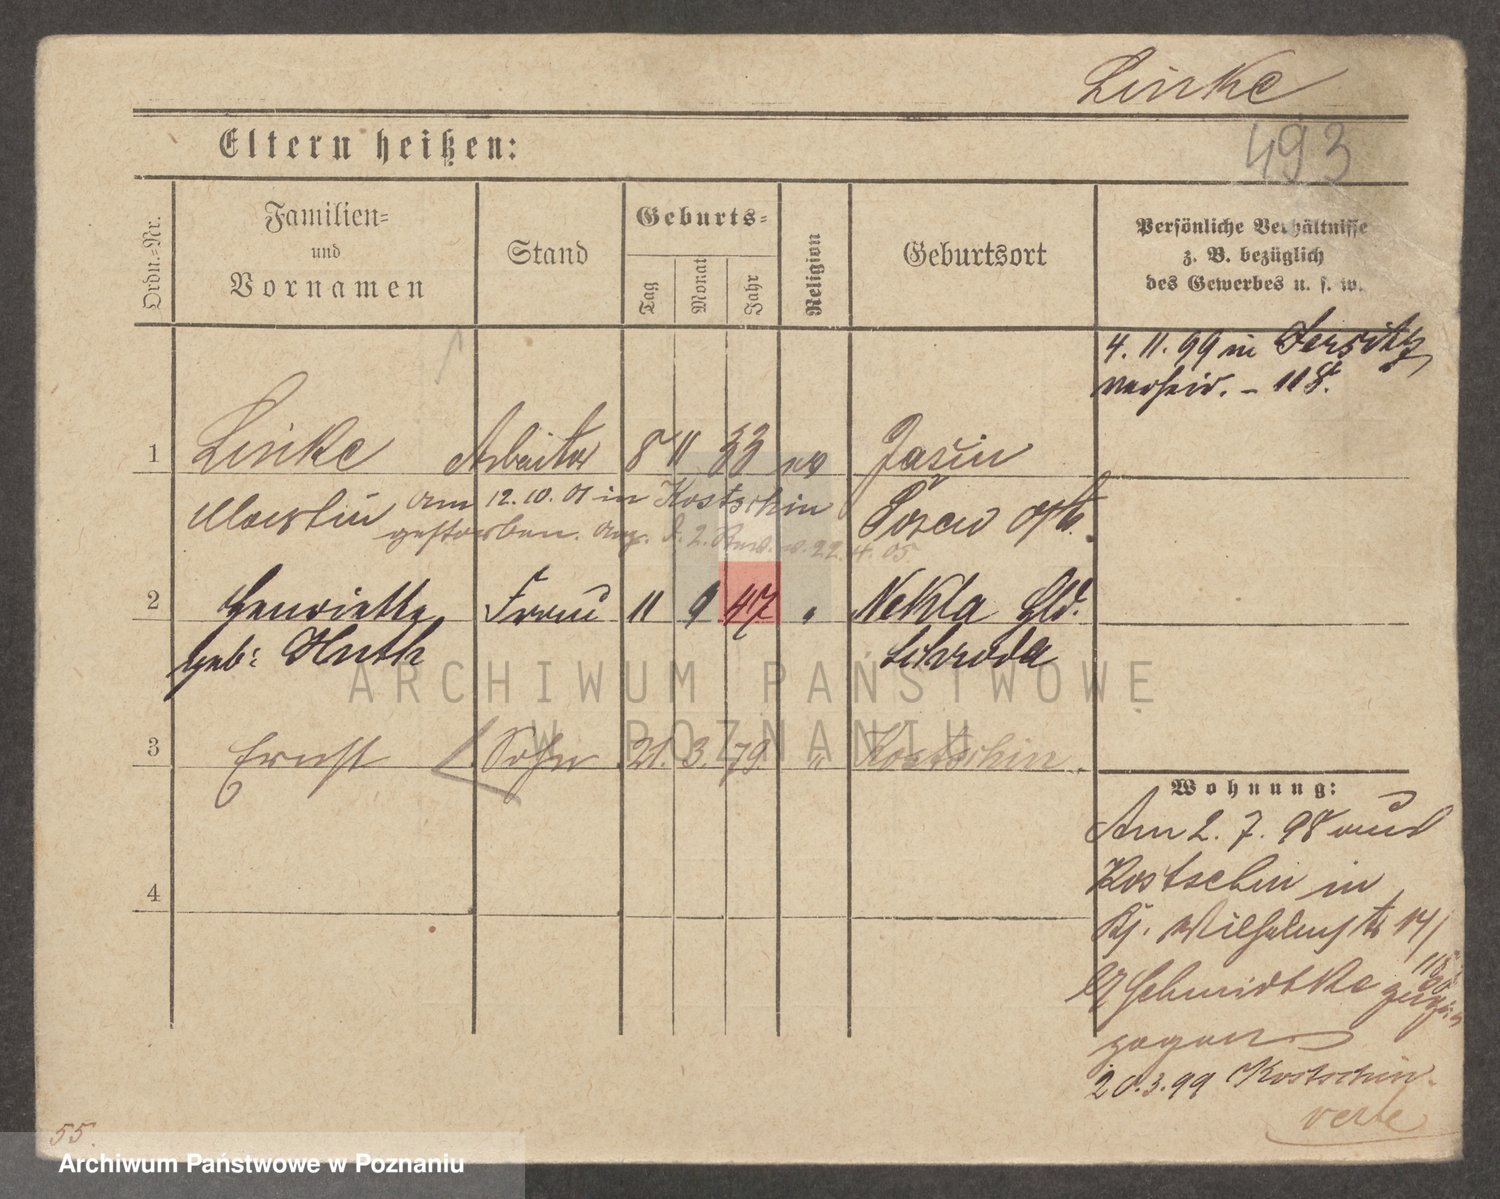 Linke
493
Eltern heißen:
Ordn.-Nr.
Familien-
und
Vornamen
Stand
Geburts-
Tag
Monat
Jahr
Religion
Geburtsort
Persönliche Verhältnisse
z. B. bezüglich
des Gewerbes u. s. w.
4. 11. 99 in Jersitz
verheir. - 118.
1 Linke Arbeiter 8 11 33 ev Jasin
Martin am 12.10.01 in Kostschin Posen Ost.
gestorben. 22. 4. 05
2 Henriette Frau 11 9 47 " Nekla Hld.
geb: Huth Schroda
3 Ernst Sohn 21. 3. 79. " Kostschin.
Wohnung:
Am 2. 7. 98 aus
4
Kostschin in
Wilhelmstr 14/
Schmidtke
gezogen
20.3.99 Kostschin.
verte
55.
ARCHIWUM PAŃSTWOWE
W POZNANIU
Archiwum Państwowe w Poznaniu